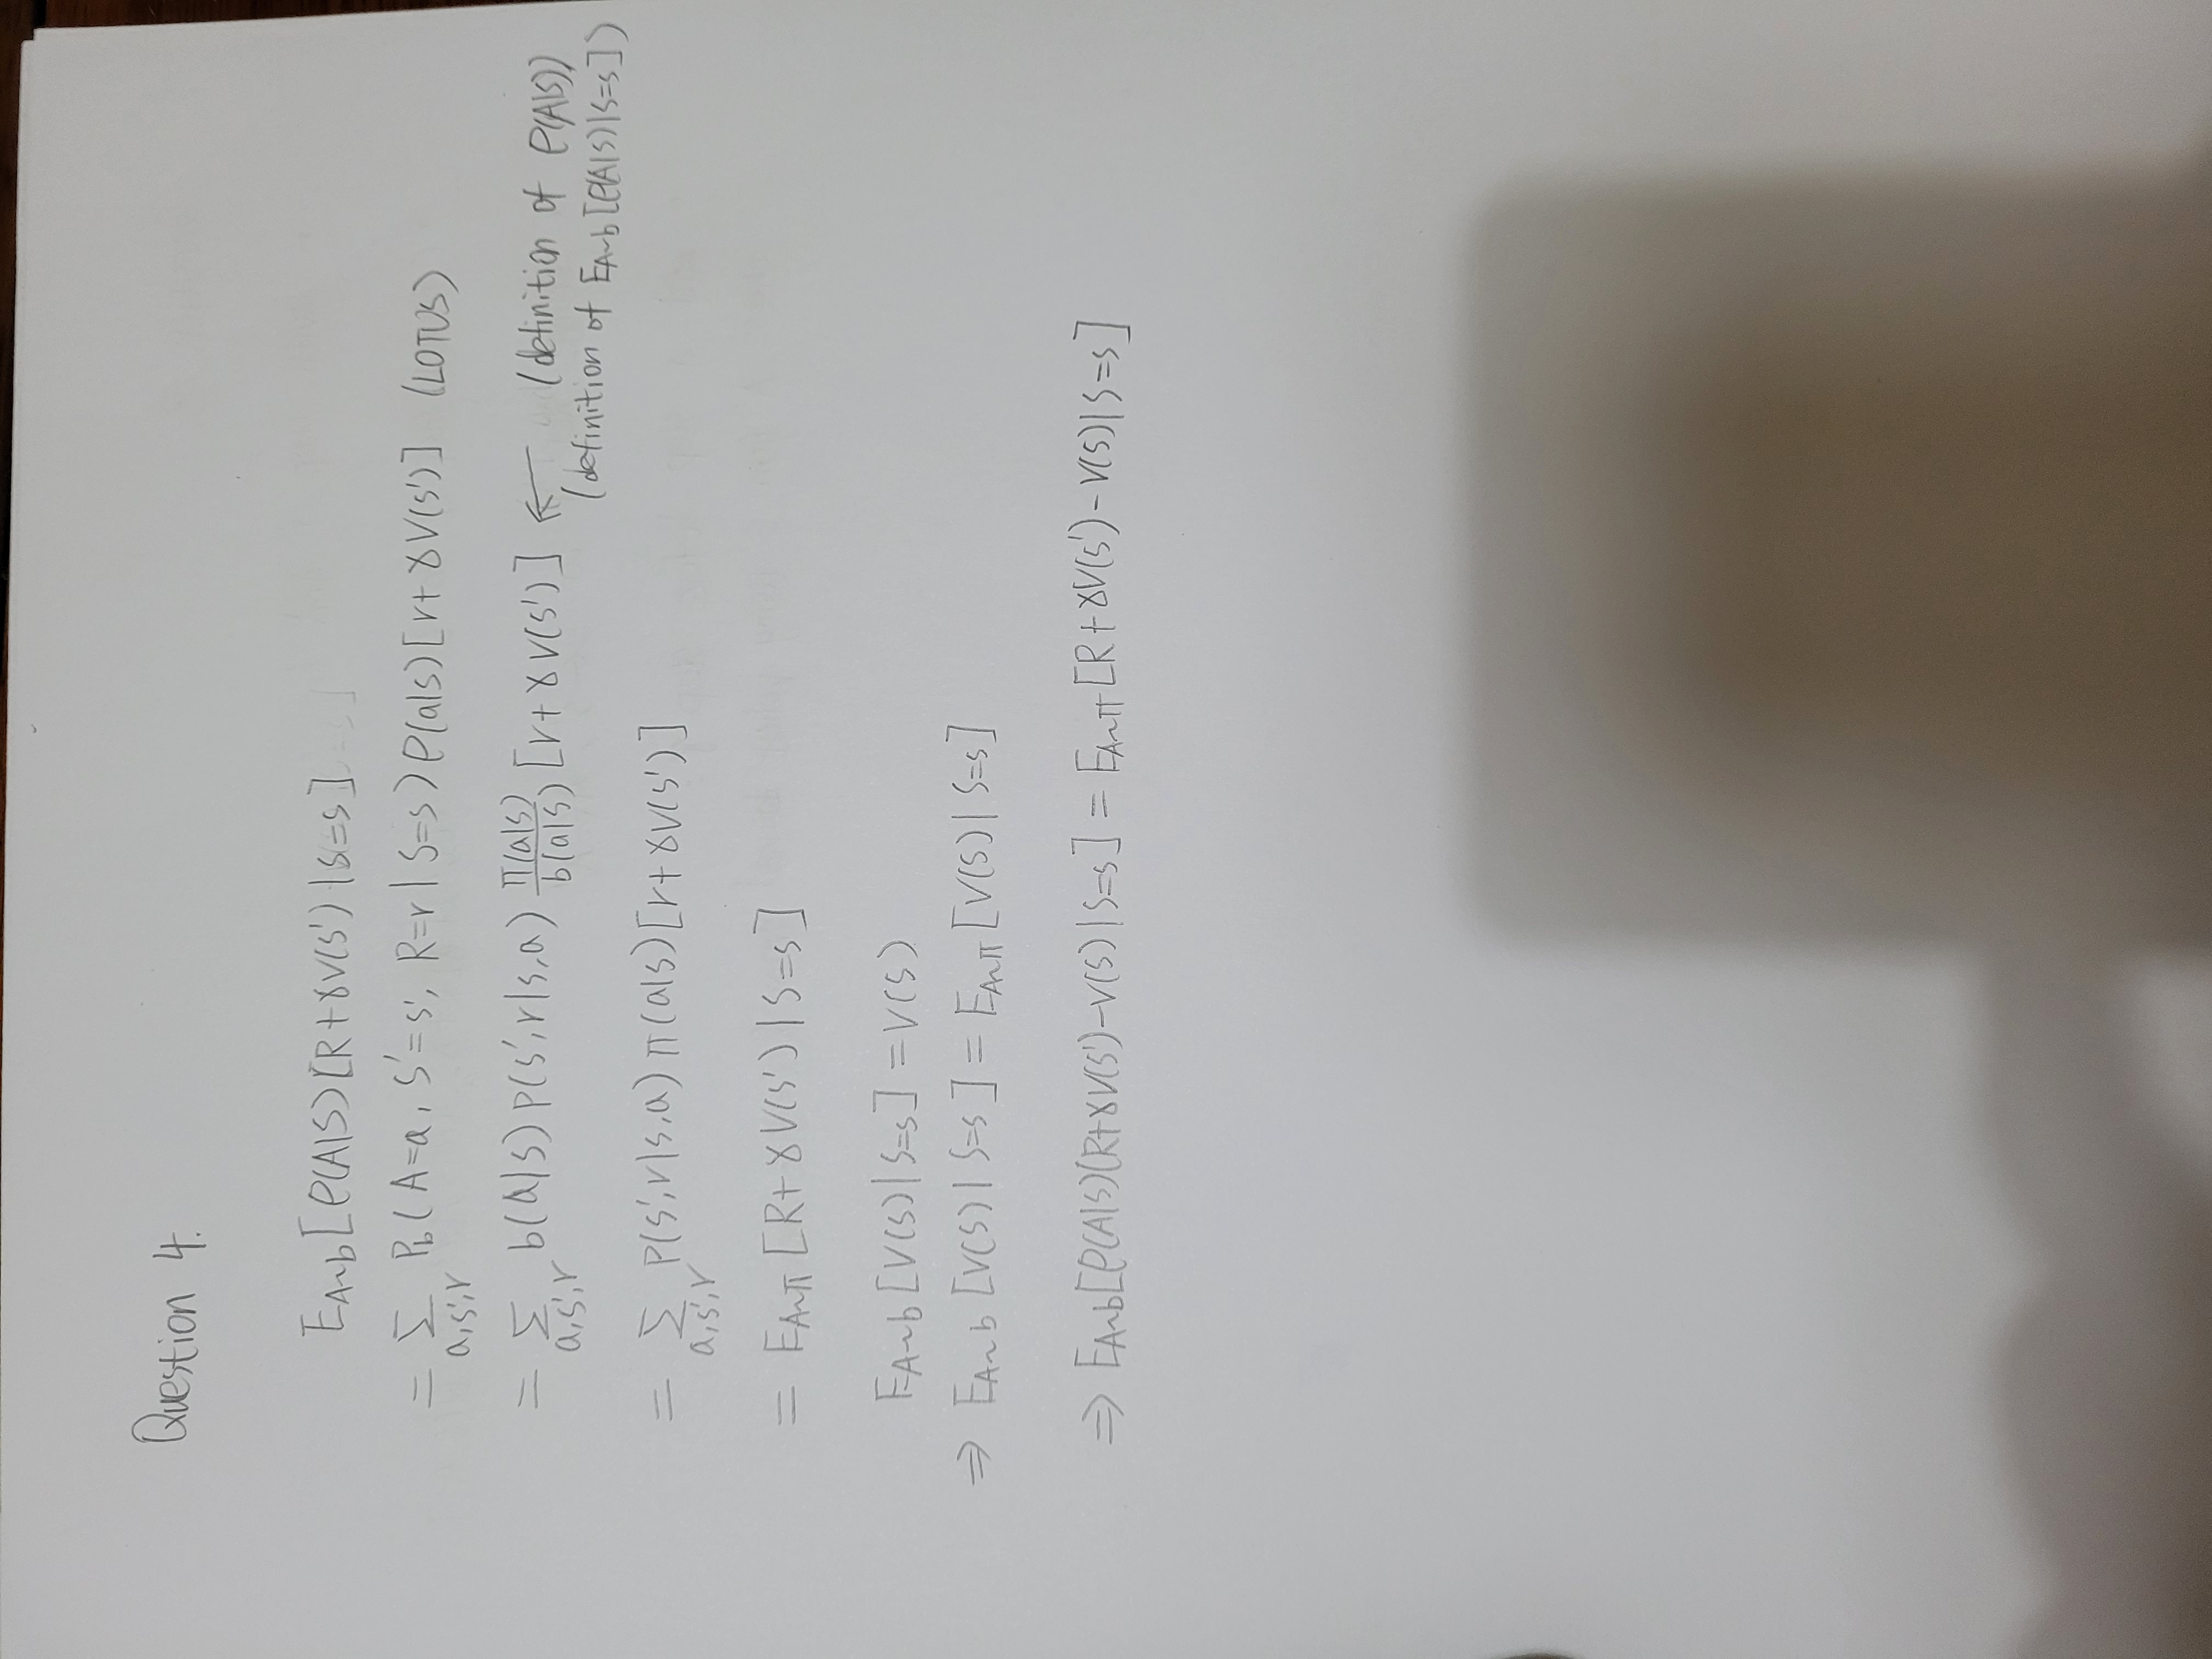 Question 4.
E_{A~b}[ρ(A|S)[R+γV(S')|S=s]
= Σ_{a,s',r} P_b(A=a, S'=s', R=r|S=s)ρ(a|s)[r+γV(s')] (LOTUS)
= Σ_{a,s',r} b(a|s)p(s',r|s,a) π(a|s)/b(a|s) [r+γV(s')] ← (definition of ρ(A|S))
(definition of E_{A~b}[ρ(A|S)|S=s])
= Σ_{a,s',r} P(s',r|s,a)π(a|s)[r+γV(s')]
= E_{A~π}[R+γV(S')|S=s]
E_{A~b}[V(S)|S=s]=V(s)
⇒ E_{A~b}[V(S)|S=s]=E_{A~π}[V(S)|S=s]
⇒ E_{A~b}[ρ(A|S)(R+γV(S')-V(S)|S=s]=E_{A~π}[R+γV(S')-V(S)|S=s]